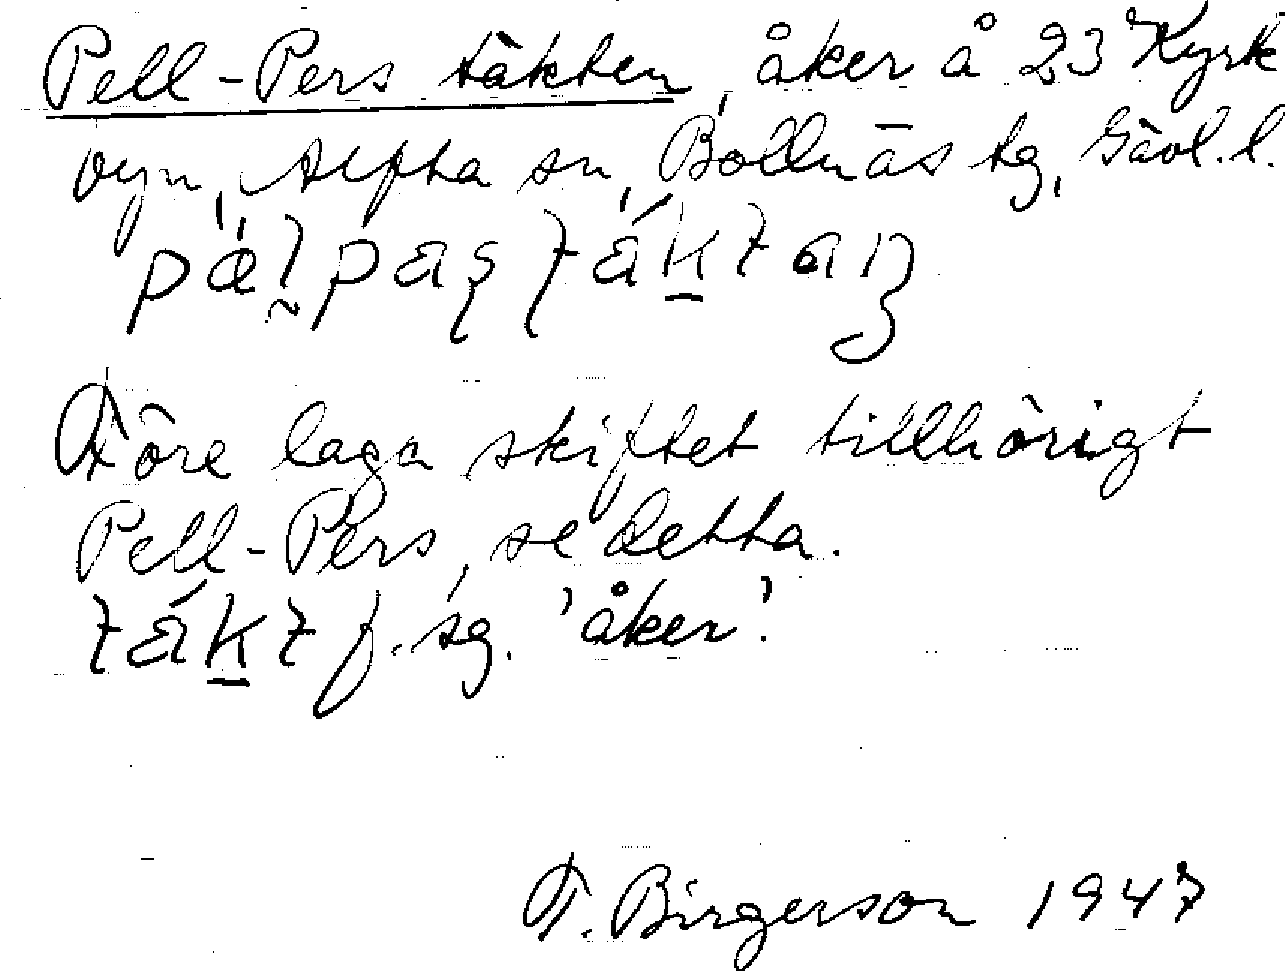 Pell-Pers täkten, åker å 23 Kyrk
byn, Alfta sn, Bollnäs tg, Gävl. l.
Före laga skiftet tillhörigt
Pell-Pers, se detta.
f. sg. 'åker'.
F. Birgerson 1947